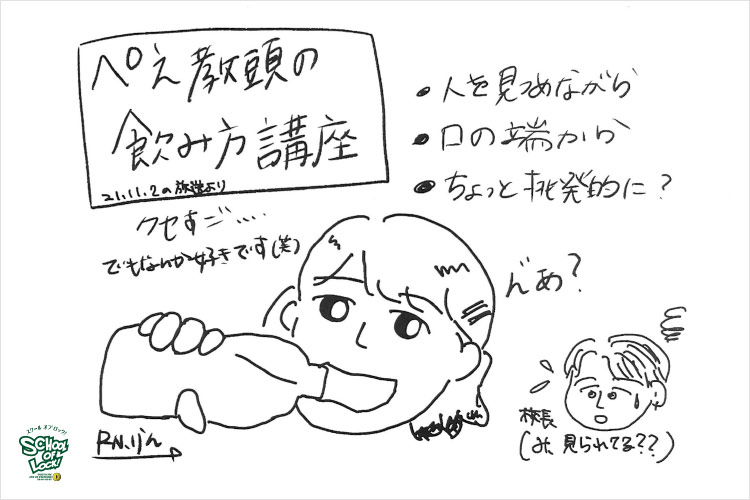 ぺえ教頭の
飲み方講座
21.11.2の放送より
・人を見つめながら
・口の端から
・ちょっと挑発的に?
クセすご….
でもなんか好きです(笑)
校長
(み、見られてる??)
R.N.りん
スクール オブ ロック!
SCHOOL
OF
LOCK!